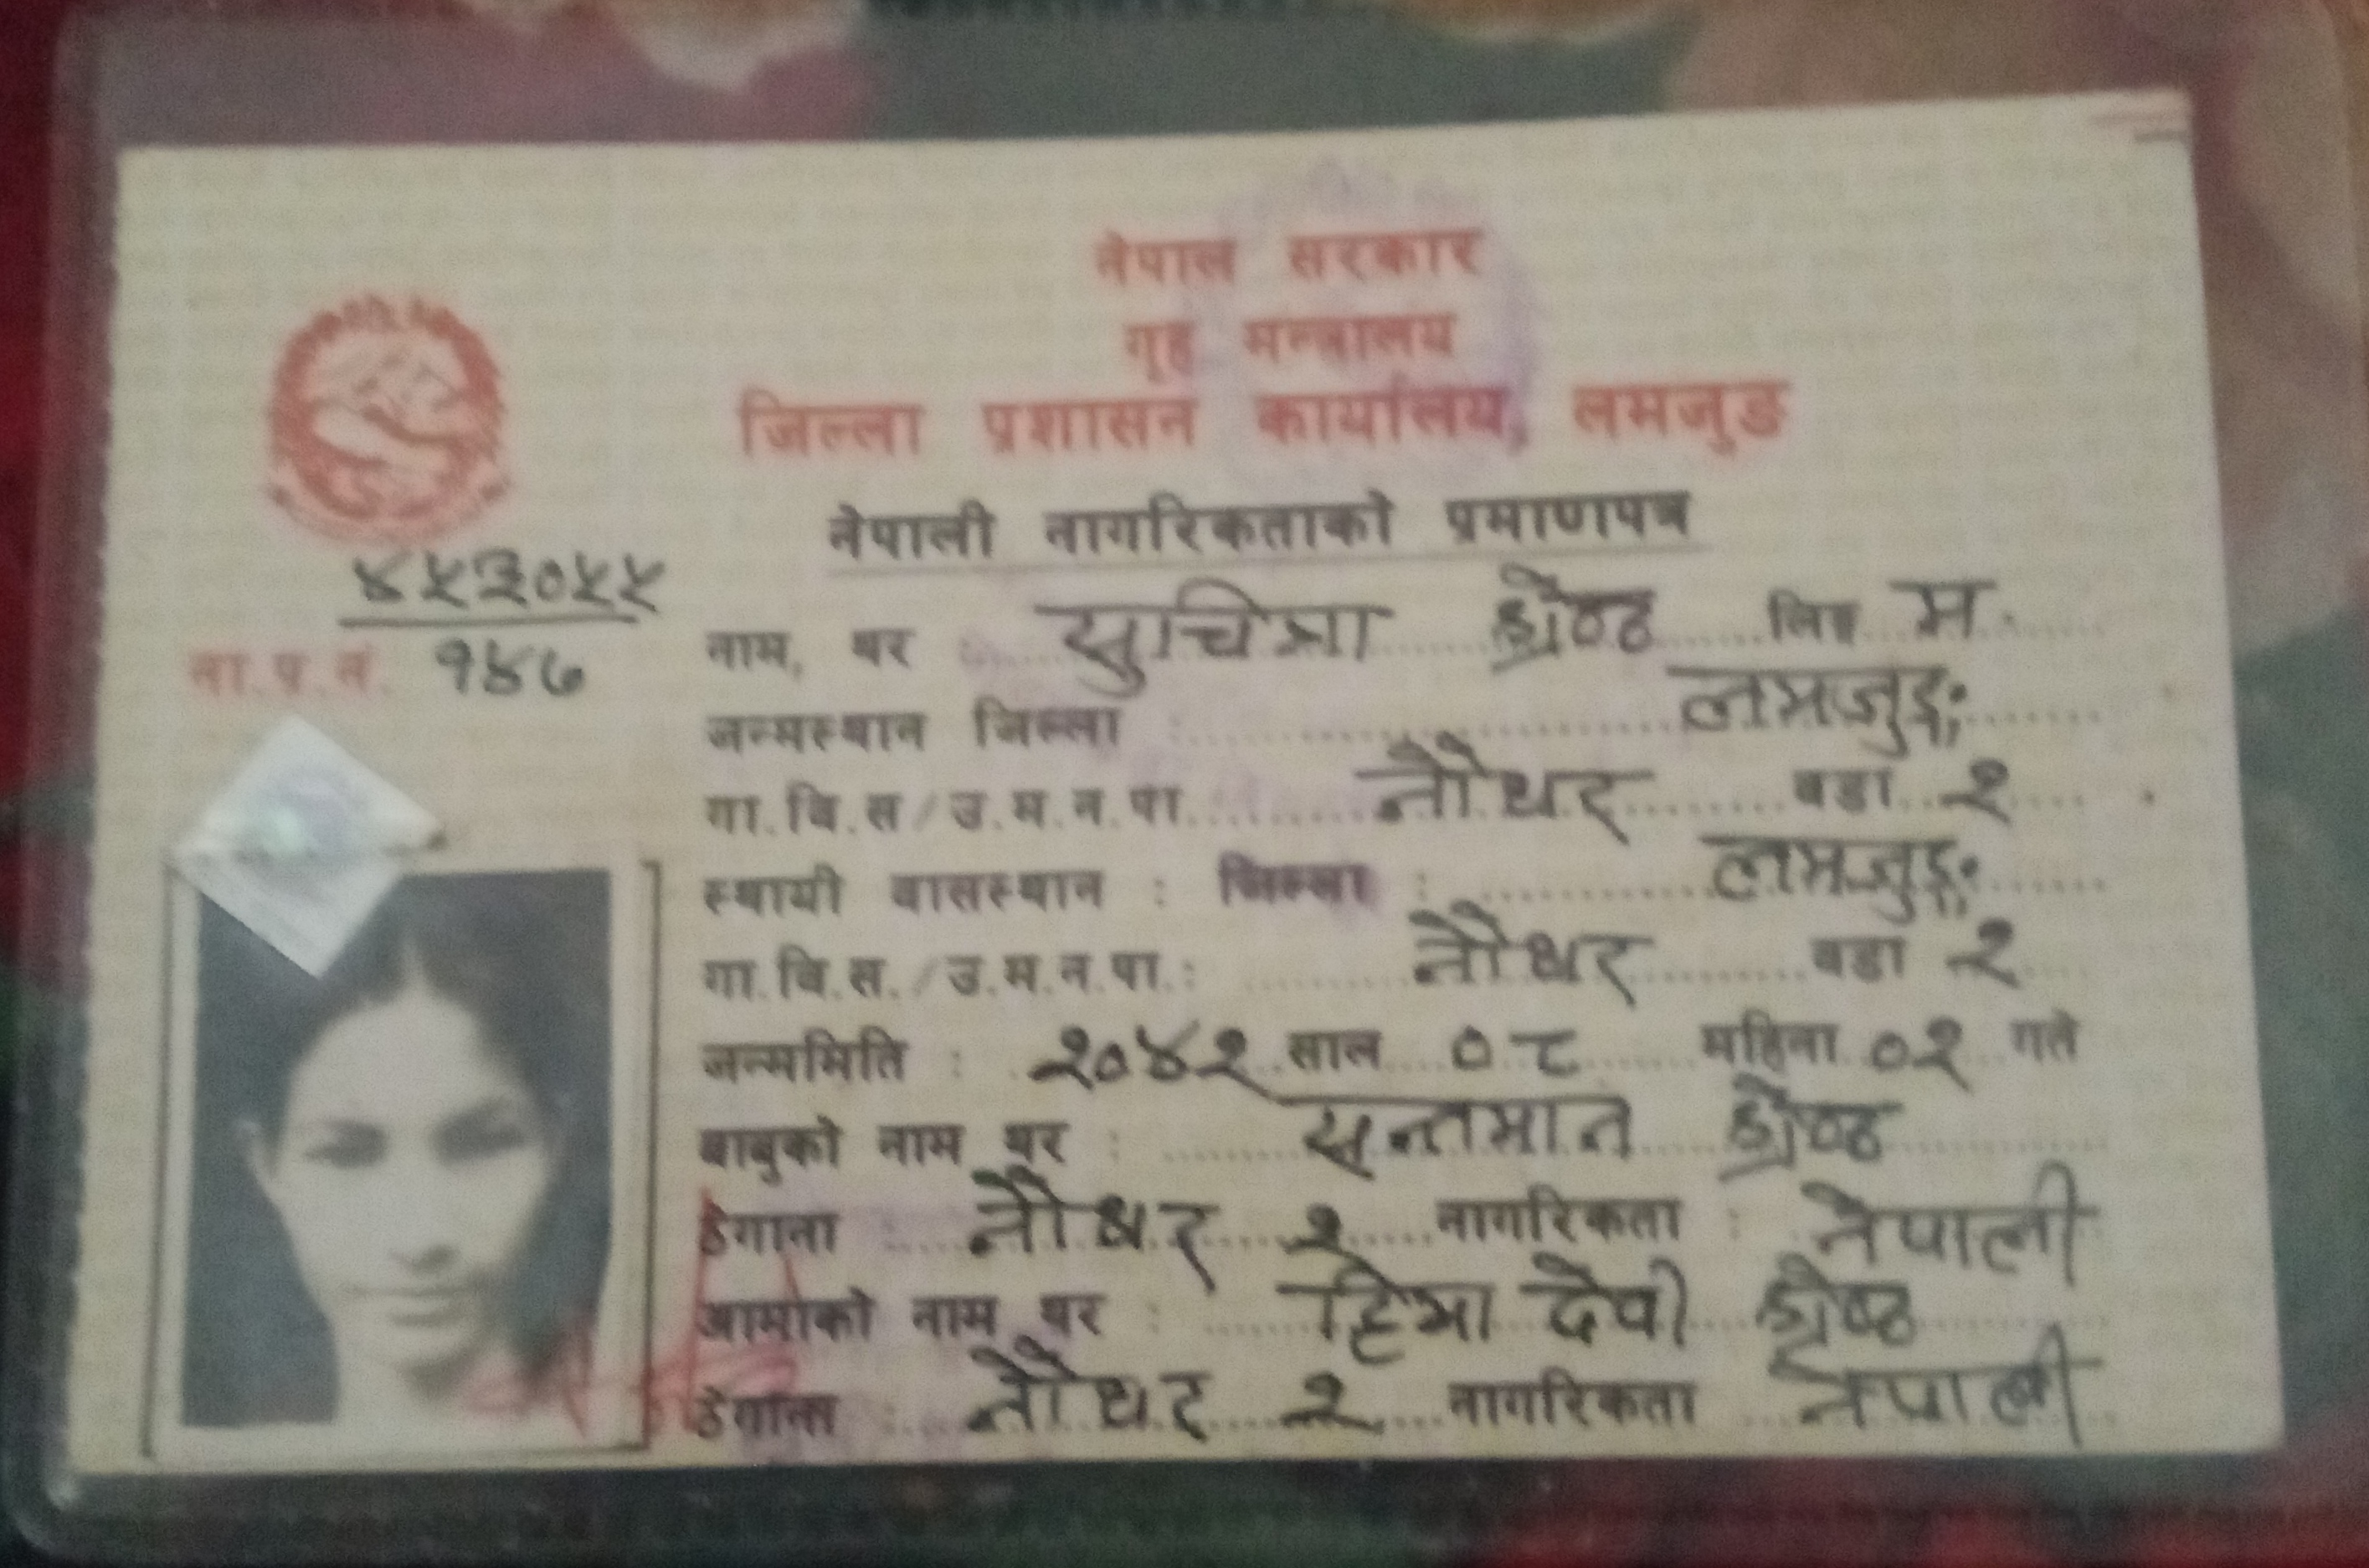 नेपाल सरकार
गृह मन्त्रालय
जिल्ला प्रशासन कार्यालय, लमजुङ
नेपाली नागरिकताको प्रमाणपत्र
४५३०५५
ना.प.नं. १४७
नाम, थर : सुचित्रा श्रेष्ठ लिङ्ग म.
जन्मस्थान जिल्ला : लमजुङ
गा.वि.स/उ.म.न.पा. नौथर वडा २
स्थायी वासस्थान : जिल्ला : लमजुङ
गा.वि.स./उ.म.न.पा.: नौथर वडा २
जन्ममिति : २०४२ साल ०८ महिना ०२ गते
बाबुको नाम थर : सन्तमान श्रेष्ठ
ठेगाना : नौथर २ नागरिकता : नेपाली
आमाको नाम थर : देवी श्रेष्ठ
ठेगाना : नौथर २ नागरिकता नेपाली